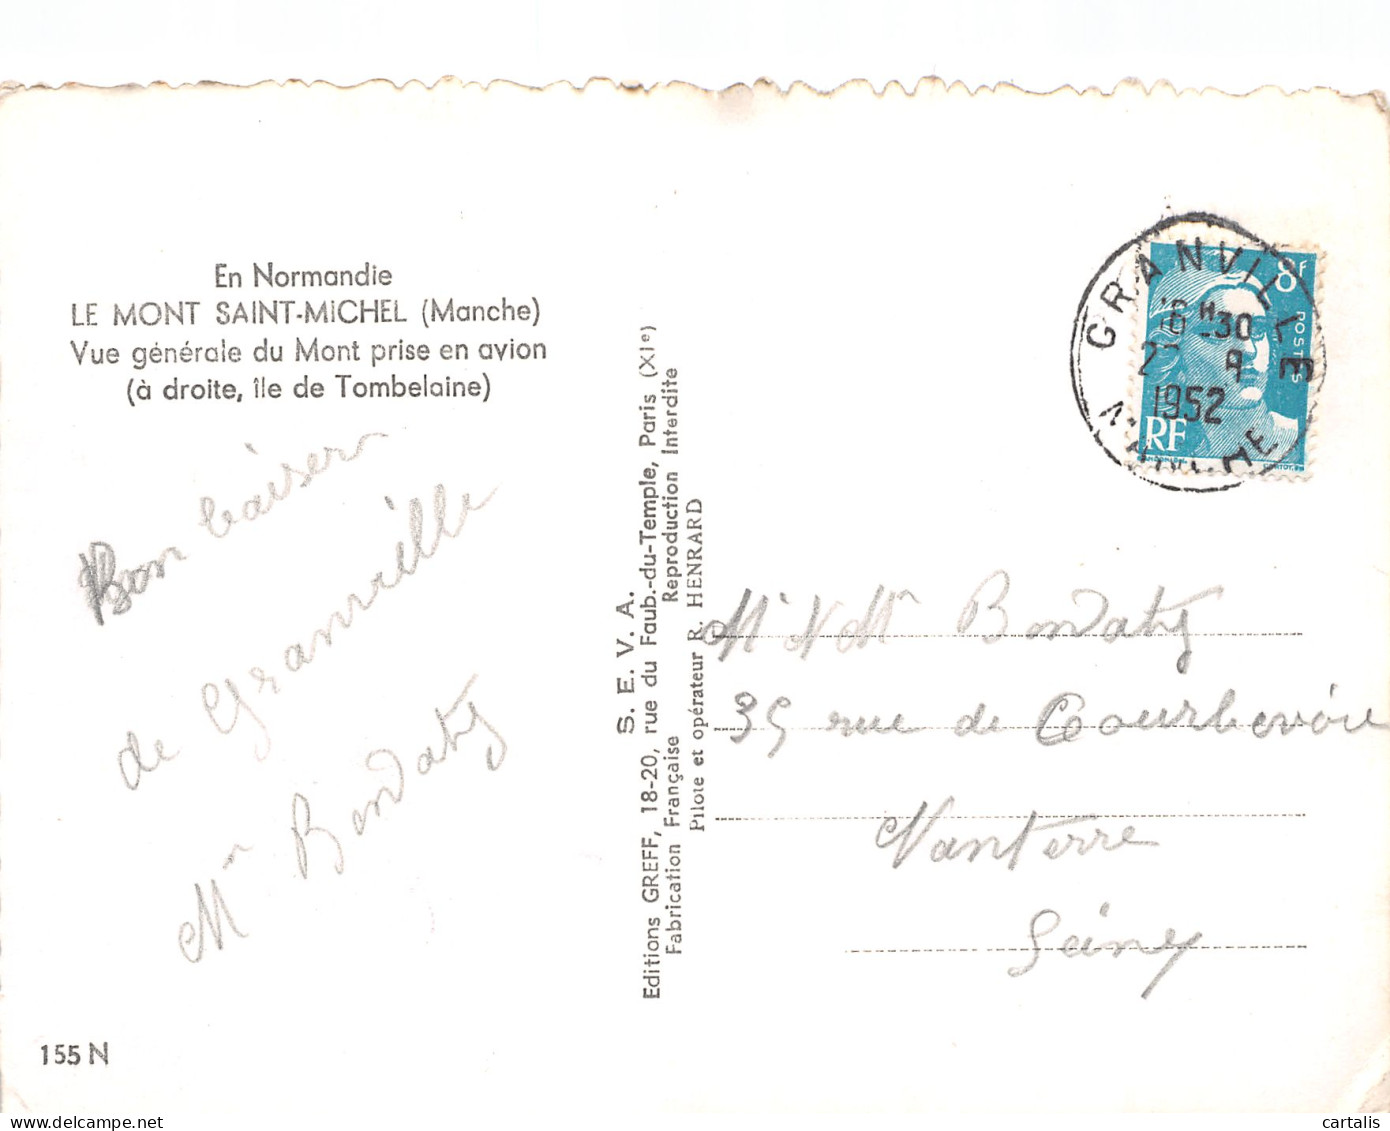 En Normandie
LE MONT SAINT-MICHEL (Manche)
Vue générale du Mont prise en avion
(à droite, île de Tombelaine)
Bon baiser
de Granville
Mr Bondaty
155 N
S. E. V. A.
Editions GREFF, 18-20, rue du Faub.-du-Temple, Paris (XIe)
Fabrication Française Reproduction Interdite
Pilote et opérateur R. HENRARD
GRANVILLE
16 H 30
9
1952
MANCHE
8F
POSTES
RF
Mr Mm Bondaty
35 rue de Courbevoie
Nanterre
Seine
delcampe.net
cartalis